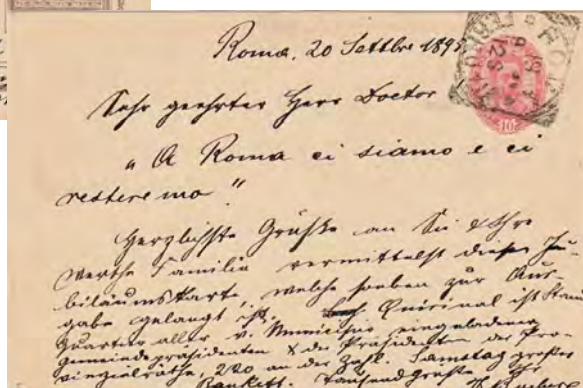 Roma, 20 Settbre 1895
Sehr geehrter Herr Doctor
" A Roma ci siamo e ci
resteremo "
Herzlichste Grüße an Sie & Ihre
werthe Familie vermittelst dieser Ju-
biläumskarte, welche soeben zur Aus-
gabe gelangt ist. Quirinal ist
quartier aller v. Municipio eingeladener
Gemeindepräsidenten & der Präsidenten der Pro-
vinzialräthe, 220 an der Zahl. Samstag großes
Bankett. Tausend Grüße Ihr
10